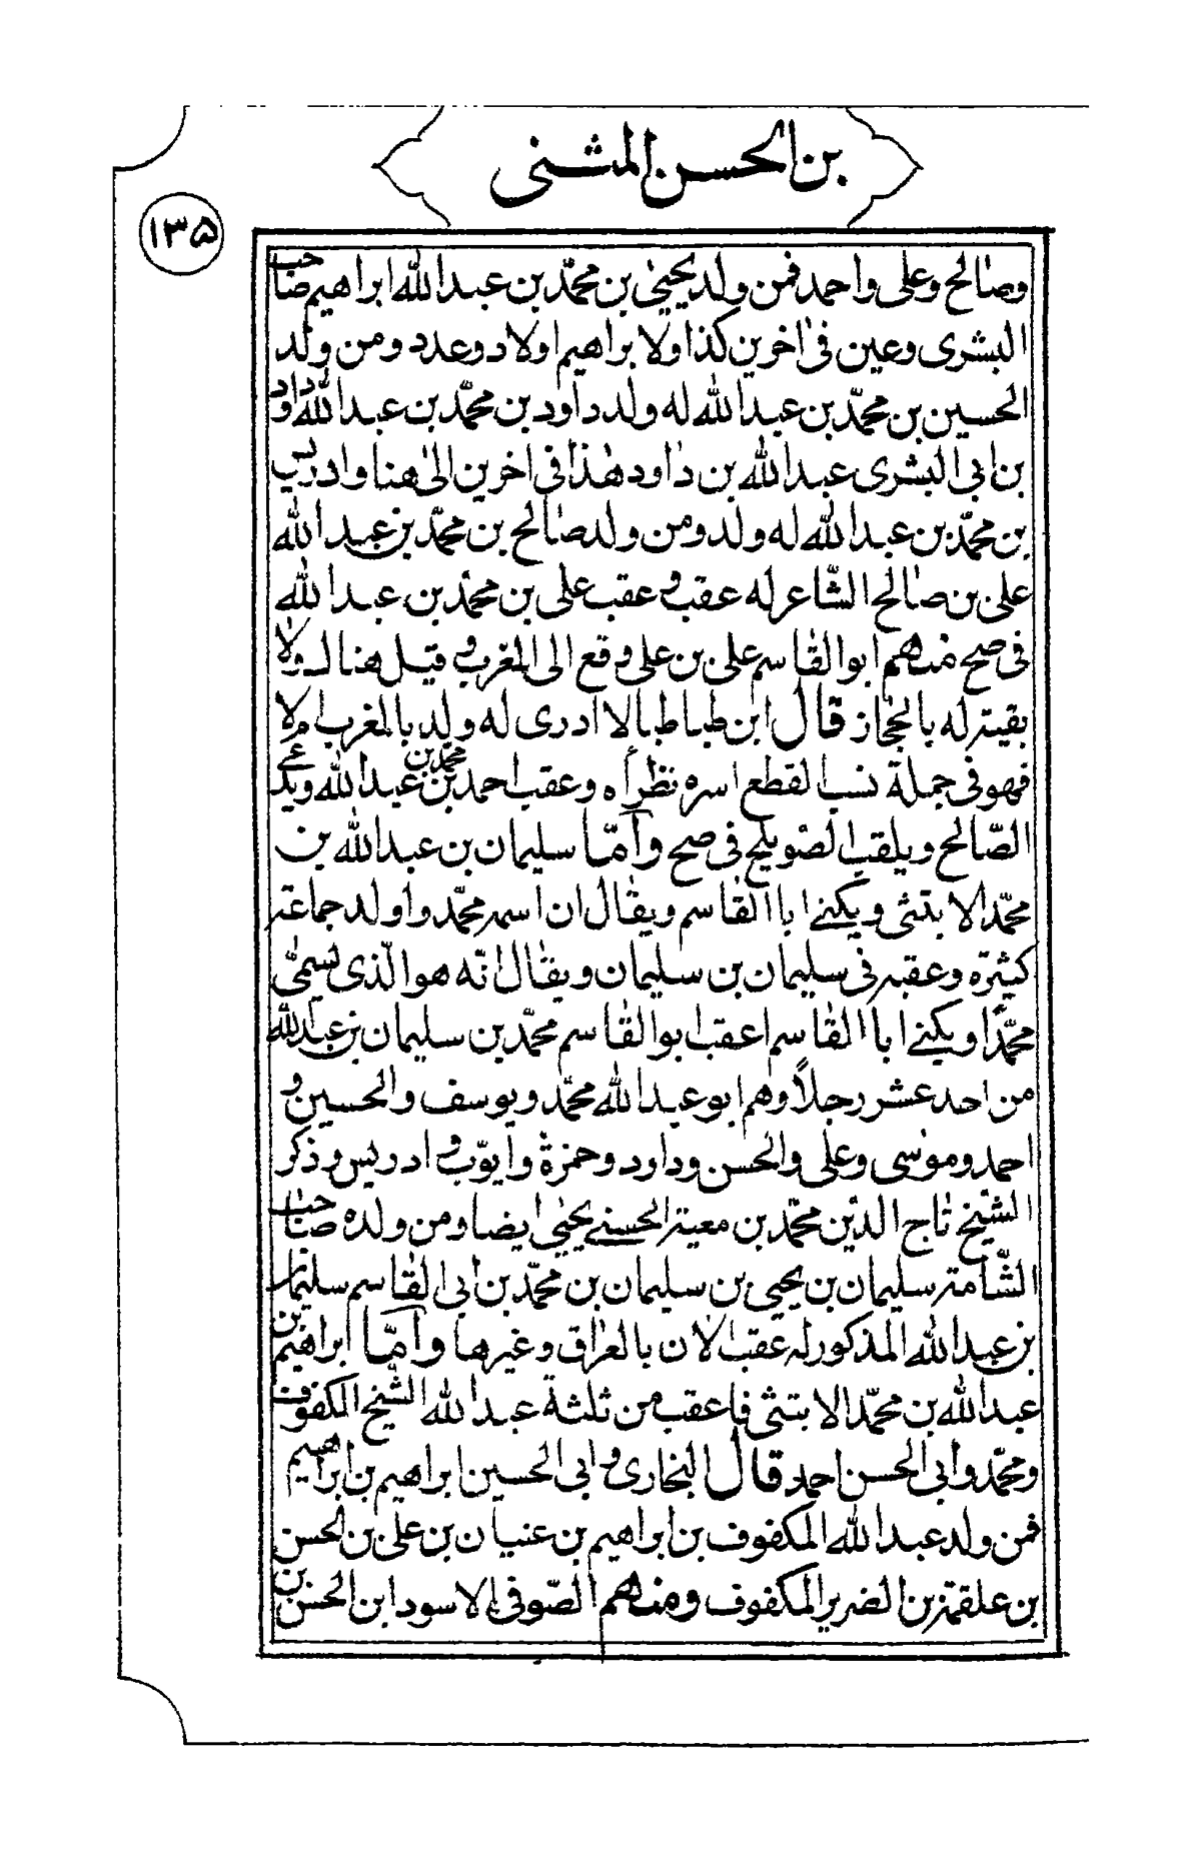 بن الحسن المثنى
١٣۵
وصالح وعلى واحمد فمن ولد يحيى بن محمّد بن عبد الله ابراهيم صاحب
البشرى وعين فى اخرين كذا ولا براهيم اولاد وعدد ومن ولد
الحسين بن محمّد بن عبد الله له ولد داود بن محمّد بن عبد الله داود
بن ابى البشرى عبد الله بن داود هٰذا فى اخرين الىٰ هنا وادريس
بن محمّد بن عبد الله له ولد ومن ولد صالح بن محمّد بن عبد الله
على بن صالح الشّاعر له عقب وعقب على بن محمّد بن عبد الله
فى صح منهم ابو القاسم على بن على وقع الى المغرب وقيل هناك ولا
بقية له بالحجاز قال ابن طباطبا لا ادرى له ولد بالمغرب ام لا
فهو فى جملة نسب القطع اسره نظراه وعقب احمد بن محمّد بن عبد الله ويدعى
الصّالح ويلقب الصّويلح فى صح وأمّا سليمان بن عبد الله بن
محمّد الابتثى ويكنے ابا القاسم ويقال ان اسمه محمّد واولد جماعة
كثيرة وعقبه فى سليمان بن سليمان ويقال انّه هو الّذى يسمىّ
محمّداً ويكنے ابا القاسم اعقب ابو القاسم محمّد بن سليمان بن عبد الله
من احد عشر رجلاً وهم ابو عبد الله محمّد ويوسف والحسين و
احمد وموسى وعلى والحسن وداود وحمزة وايوّب وادريس وذكر
الشّيخ تاج الديّن محمّد بن معية الحسنے يحيى ايضا ومن ولده صاحب
الشّامة سليمان بن يحيى بن سليمان بن محمّد بن ابى القاسم سليمان
بن عبد الله المذكور له عقب الان بالعراق وغيرها وأمّا ابراهيم بن
عبد الله بن محمّد الابتثى فاعقب من ثلثة عبد الله الشّيخ المكفوف
ومحمّد وابى الحسن احمد قال البخارى وابى الحسين ابراهيم بن ابراهيم
فمن ولد عبد الله المكفوف بن ابراهيم بن عنيان بن على بن الحسن
بن علقمة بن الضرير المكفوف ومنهم الصّوفى الاسود ابن الحسن بن